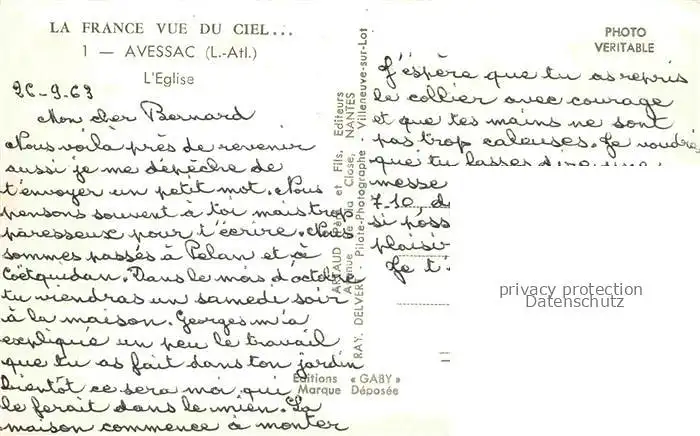 LA FRANCE VUE DU CIEL...
1 — AVESSAC (L.-Atl.)
L'Eglise
PHOTO
VERITABLE
26-9-63
Mon cher Bernard
Nous voilà près de revenir
aussi je me dépêche de
t'envoyer un petit mot. Nous
pensons souvent à toi mais trop
paresseux pour t'écrire. Nous
sommes passés à Pelan et à
Coëtquidan. Dans le mois d'octobre
tu viendras un samedi soir
à la maison. Georges m'a
expliqué un peu le travail
que tu as fait dans ton jardin
bientôt ce sera moi qui
le ferait dans le mien. La
maison commence à monter
J'espère que tu as repris
le collier avec courage
et que tes mains ne sont
pas trop caleuses. Je voudrais
que tu fasses dire une
messe
7-10 d
si poss
plaisir
Je t'
ARTAUD Père et Fils, Editeurs
Avenue de la Close, NANTES
RAY. DELVERT - Pilote-Photographe - Villeneuve-sur-Lot
Editions « GABY »
Marque Déposée
privacy protection
Datenschutz